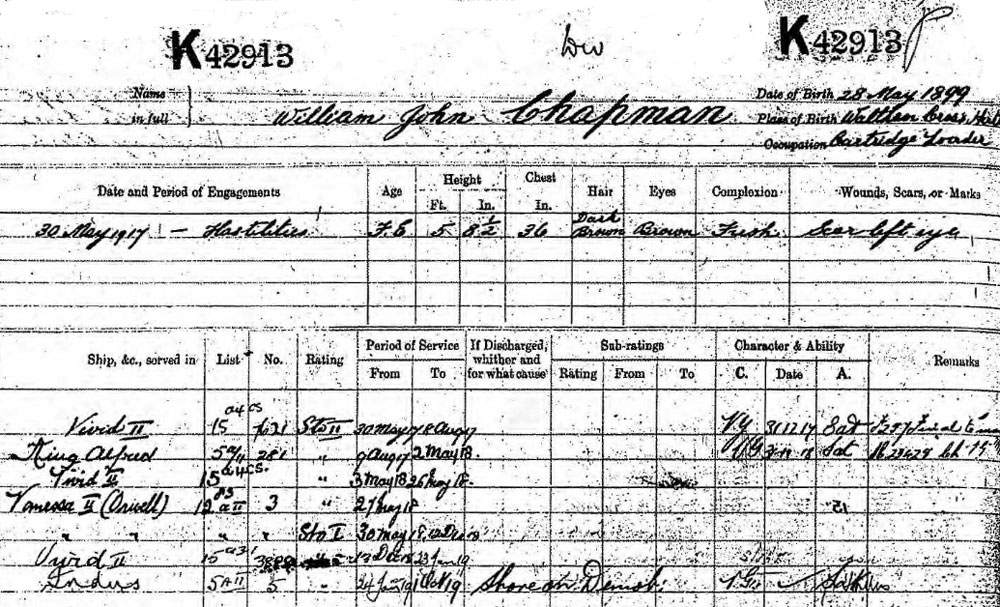 K 42913 K 42913
Name in full William John Chapman
Date of Birth 28 May 1899
Place of Birth Waltham Cross, Herts
Occupation Cartridge Loader
Date and Period of Engagements Age Height Ft. In. Chest In. Hair Eyes Complexion Wounds, Scars, or Marks
30 May 1917 - Hostilities F.E 5 8½ 36 Dark Brown Brown Fresh Scar left eye
Ship, &c., served in List No. Rating Period of Service From To If Discharged, whither and for what cause Sub-ratings Rating From To Character & Ability C. Date A. Remarks
Vivid II 15 Sto II 30 May 17 8 Aug 17 VG 31.12.17 Sat
King Alfred 281 " 9 Aug 17 2 May 18. VG Sat
Vivid II 15 " 3 May 18 26 May 18.
Vanessa II (Orwell) 12 3 " 27 May 18
" " " " Sto I 30 May 18 12 Dec 18
Vivid II 15 13 Dec 18 23 Jan 19
Indus 5 AII 5 " 24 Jan 19 1 Oct 19 Shore on Demob.